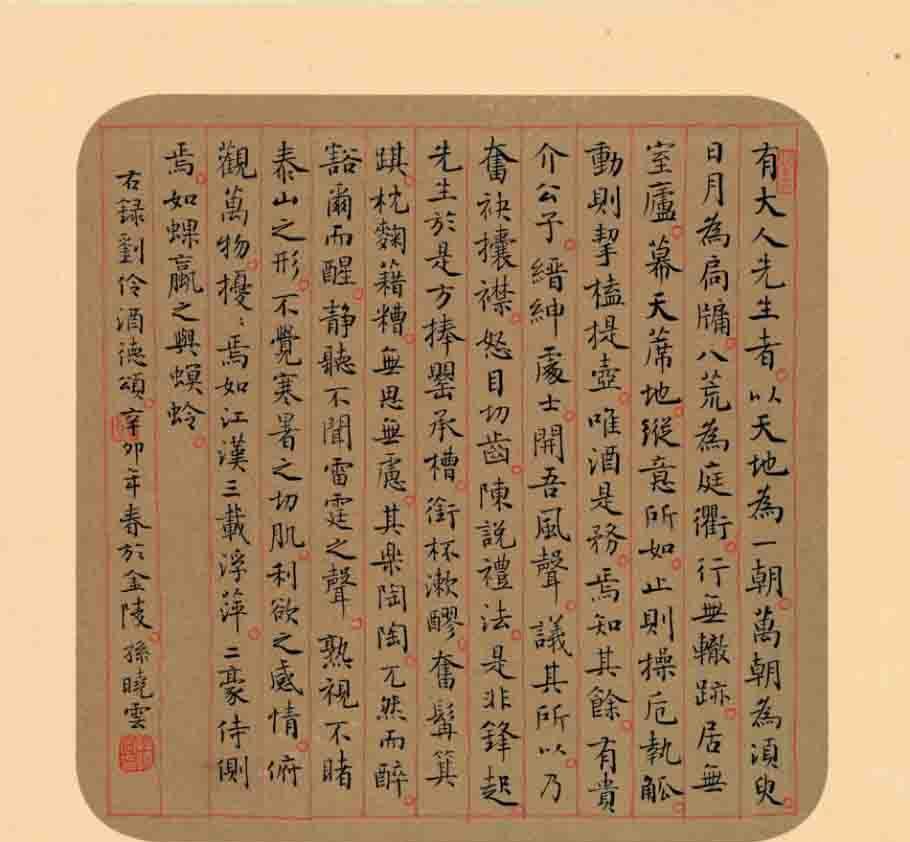 有大人先生者以天地為一朝萬朝為須臾
日月為扃牖八荒為庭衢行無轍跡居無
室廬幕天席地縱意所如止則操卮執觚
動則挈榼提壺唯酒是務焉知其餘有貴
介公子縉紳處士開吾風聲議其所以乃
奮袂攘襟怒目切齒陳說禮法是非鋒起
先生於是方捧罌承槽銜杯漱醪奮髯箕
踑枕麴藉糟無思無慮其樂陶陶兀然而醉
豁爾而醒靜聽不聞雷霆之聲熟視不睹
泰山之形不覺寒暑之切肌利欲之感情俯
觀萬物擾擾焉如江漢三載浮萍二豪侍側
焉如蜾蠃之與螟蛉
右録劉伶酒德頌辛卯年春於金陵孫曉雲